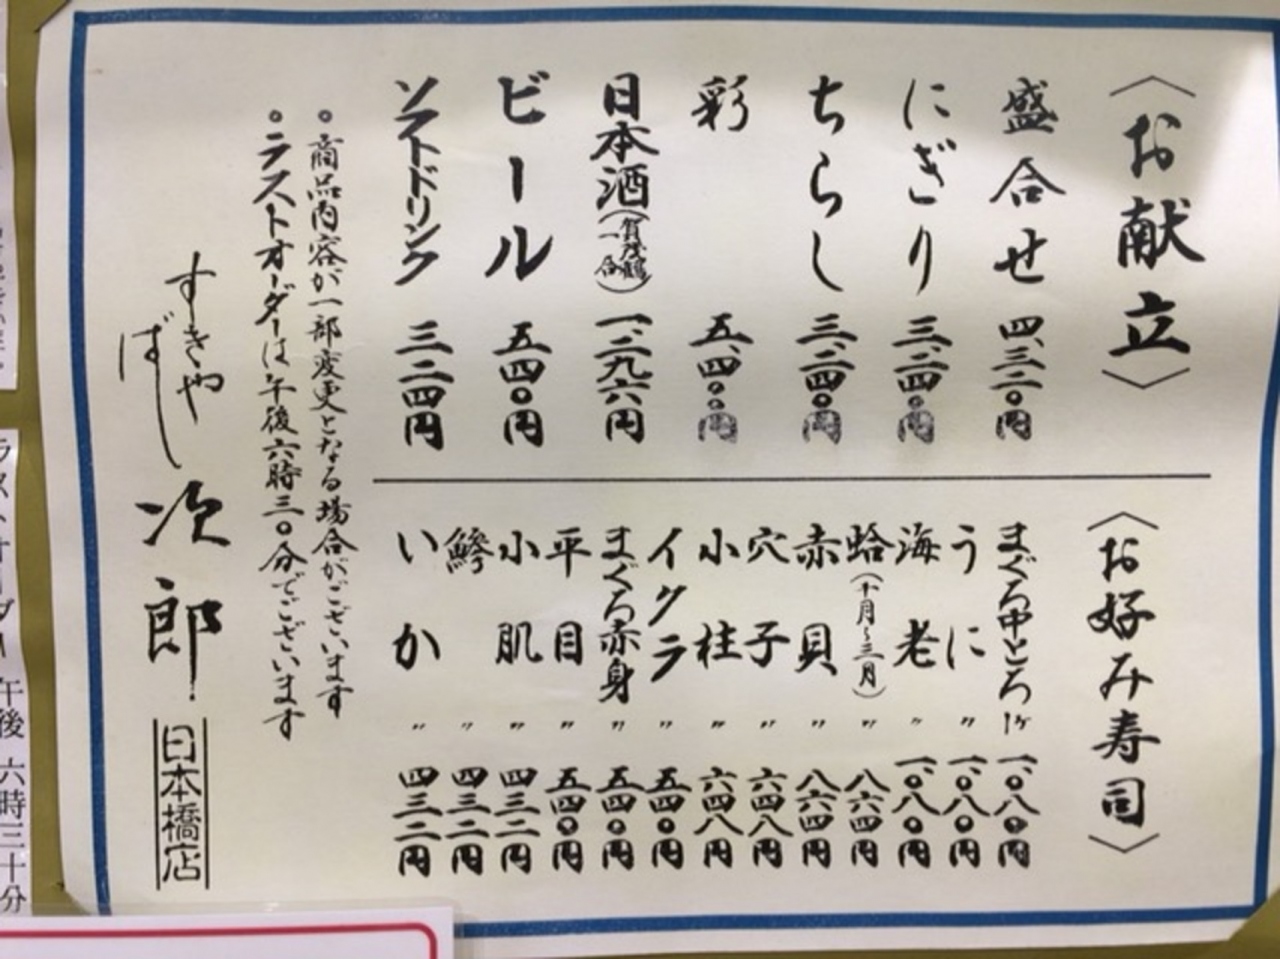 〈お献立〉
盛合せ 四、三二〇円
にぎり 三、二四〇円
ちらし 三、二四〇円
彩 五、四〇〇円
日本酒(賀茂鶴一合) 一、二九六円
ビール 五四〇円
ソフトドリンク 三二四円
〈お好み寿司〉
まぐろ中とろ 1ヶ 一、〇八〇円
うに 〃 一、〇八〇円
海老 〃 一、〇八〇円
蛤(十月〜三月) 〃 八六四円
赤貝 〃 八六四円
穴子 〃 六四八円
小柱 〃 六四八円
イクラ 〃 五四〇円
まぐろ赤身 〃 五四〇円
平目 〃 五四〇円
小肌 〃 四三二円
鯵 〃 四三二円
いか 〃 四三二円
。商品内容が一部変更となる場合がございます
。ラストオーダーは午後六時三〇分でございます
すきやばし 次郎 日本橋店
ラストオーダー 午後 六時三十分